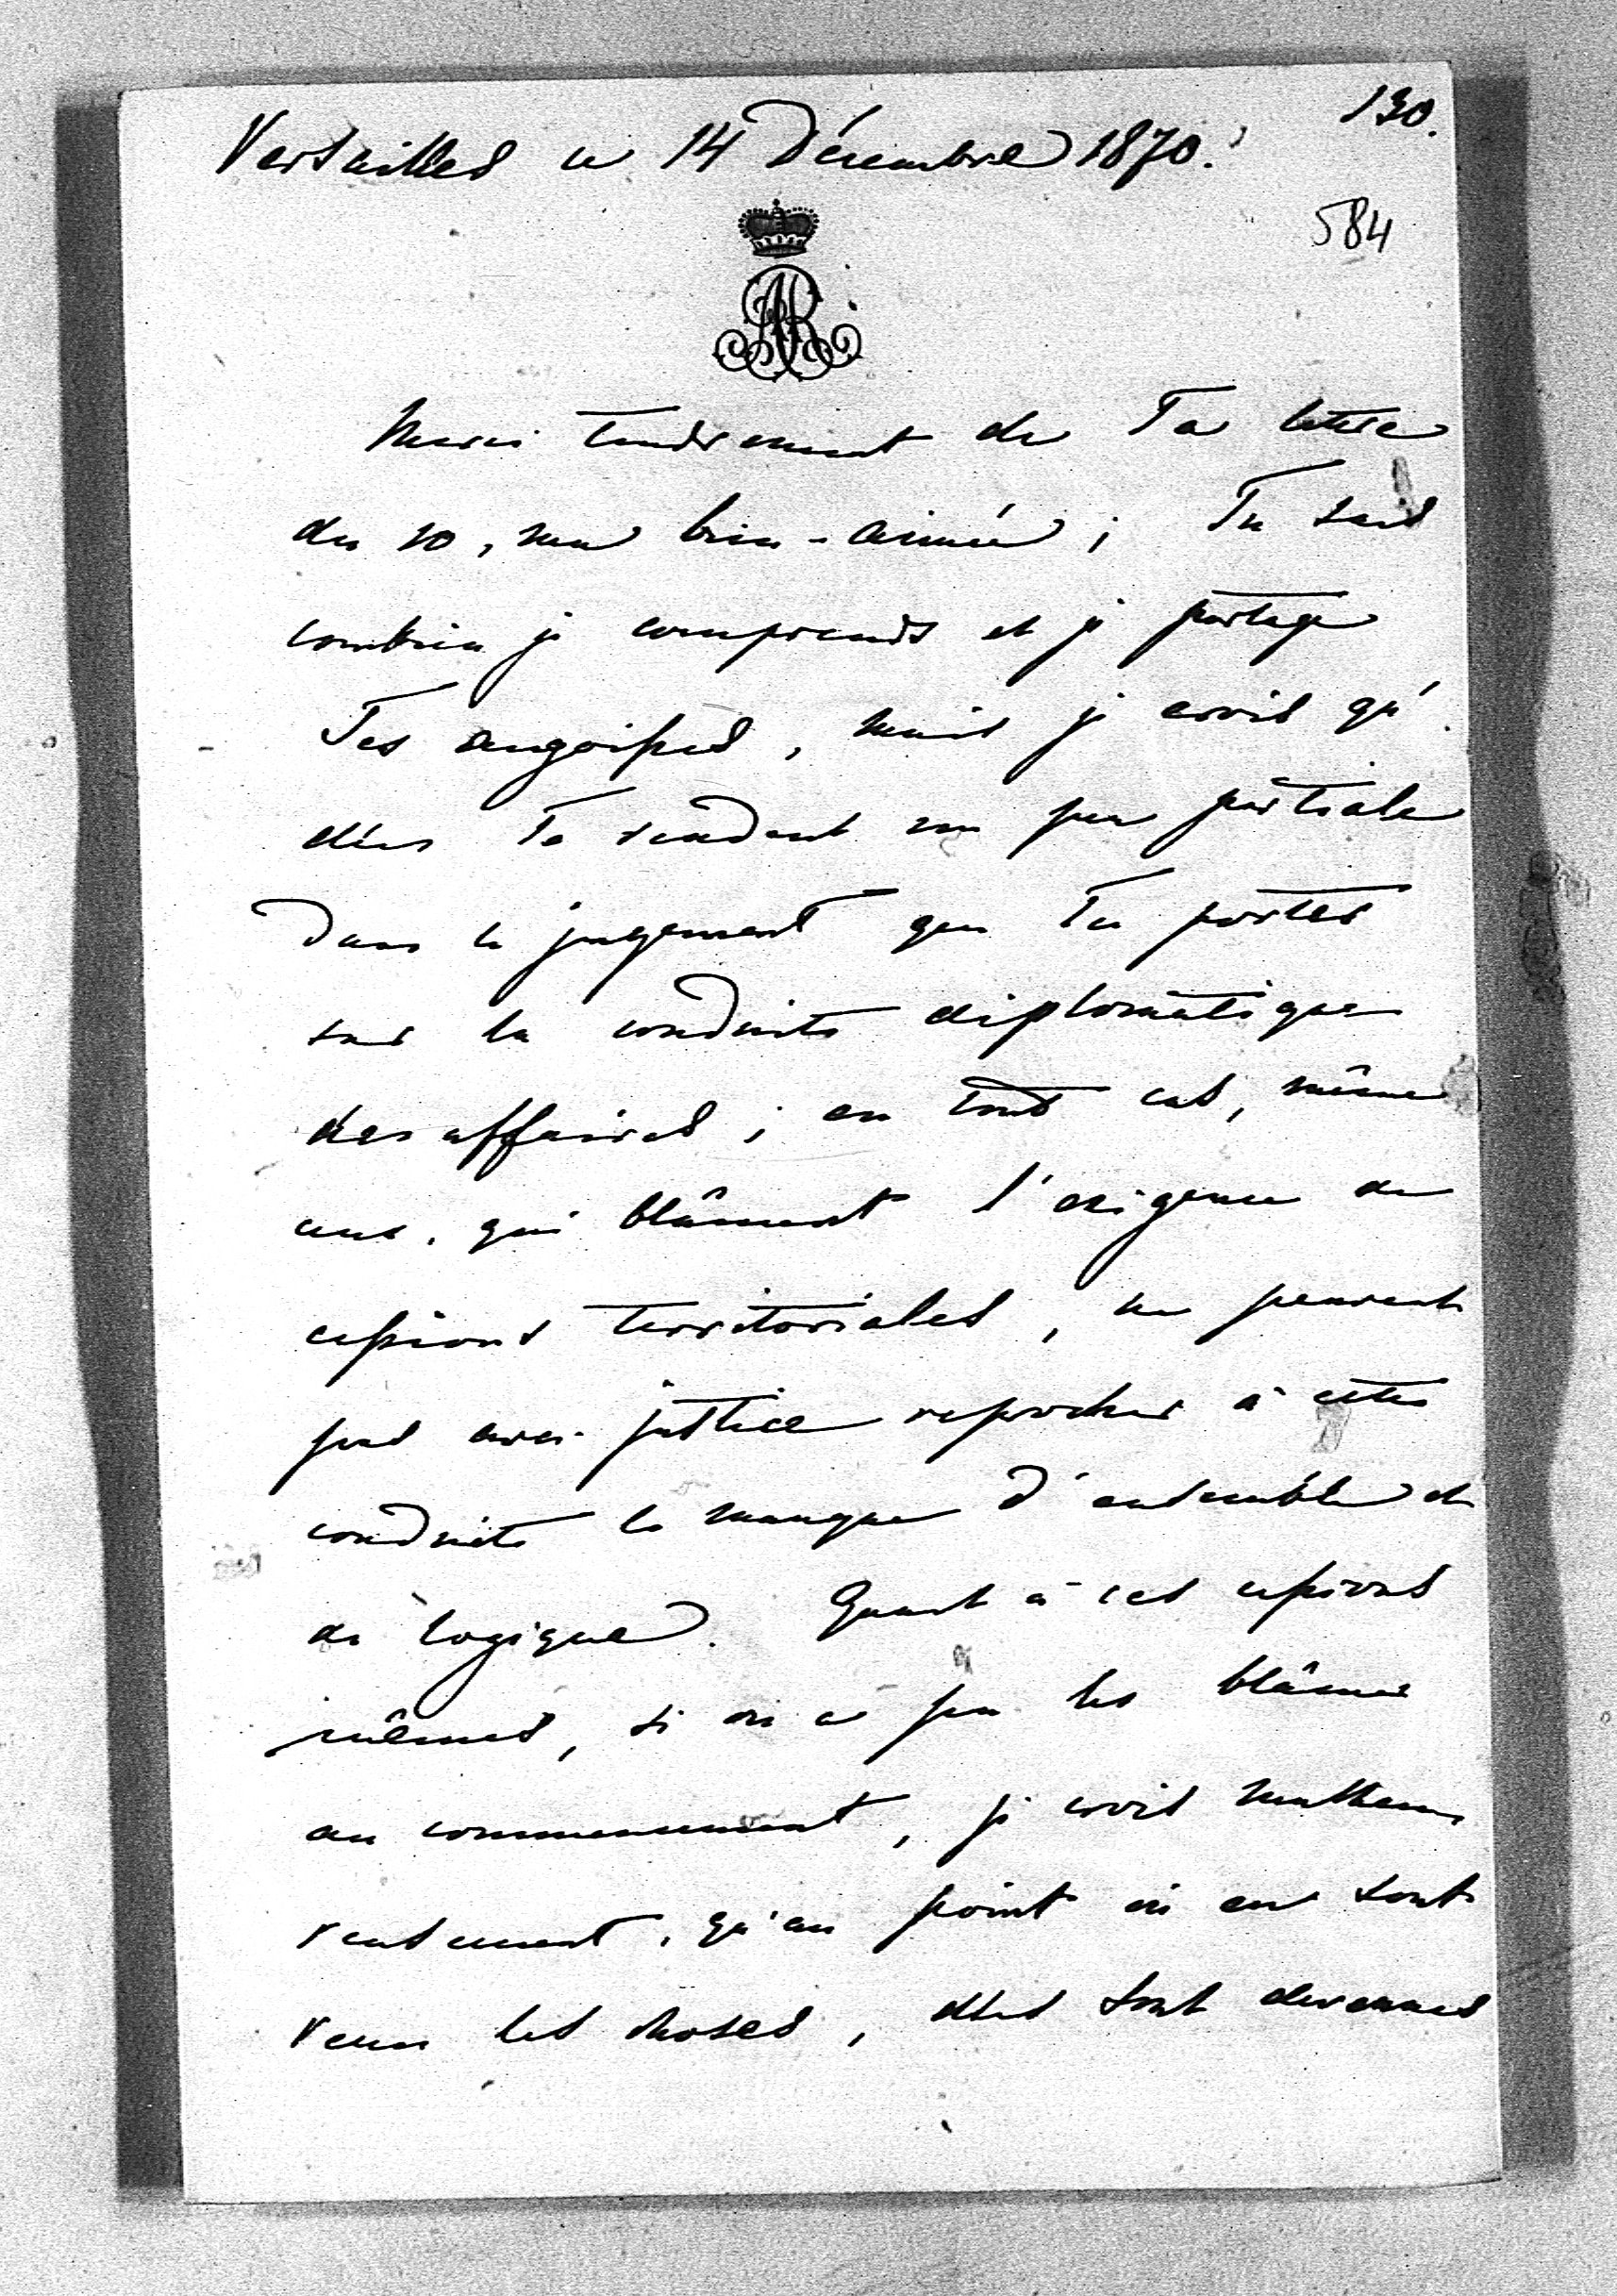 130.
Versailles ce 14 Décembre 1870.
584
Merci tendrement de Ta lettre
du 10, ma bien-aimée ; Tu sais
combien je comprends et je partage
Tes angoisses, mais je crois qu'
elles Te rendent un peu partiale
dans le jugement que Tu portes
sur la conduite diplomatique
des affaires ; en tout cas, même
ceux, qui blâment l'exigence de
cessions territoriales, ne peuvent
pas avec justice reprocher à cette
conduite le manque d'ensemble et
de logique. Quant à ces cessions
mêmes, si on a pu les blâmer
au commencement, je crois malheu
reusement, qu'au point où en sont
venu les choses, elles sont devenues